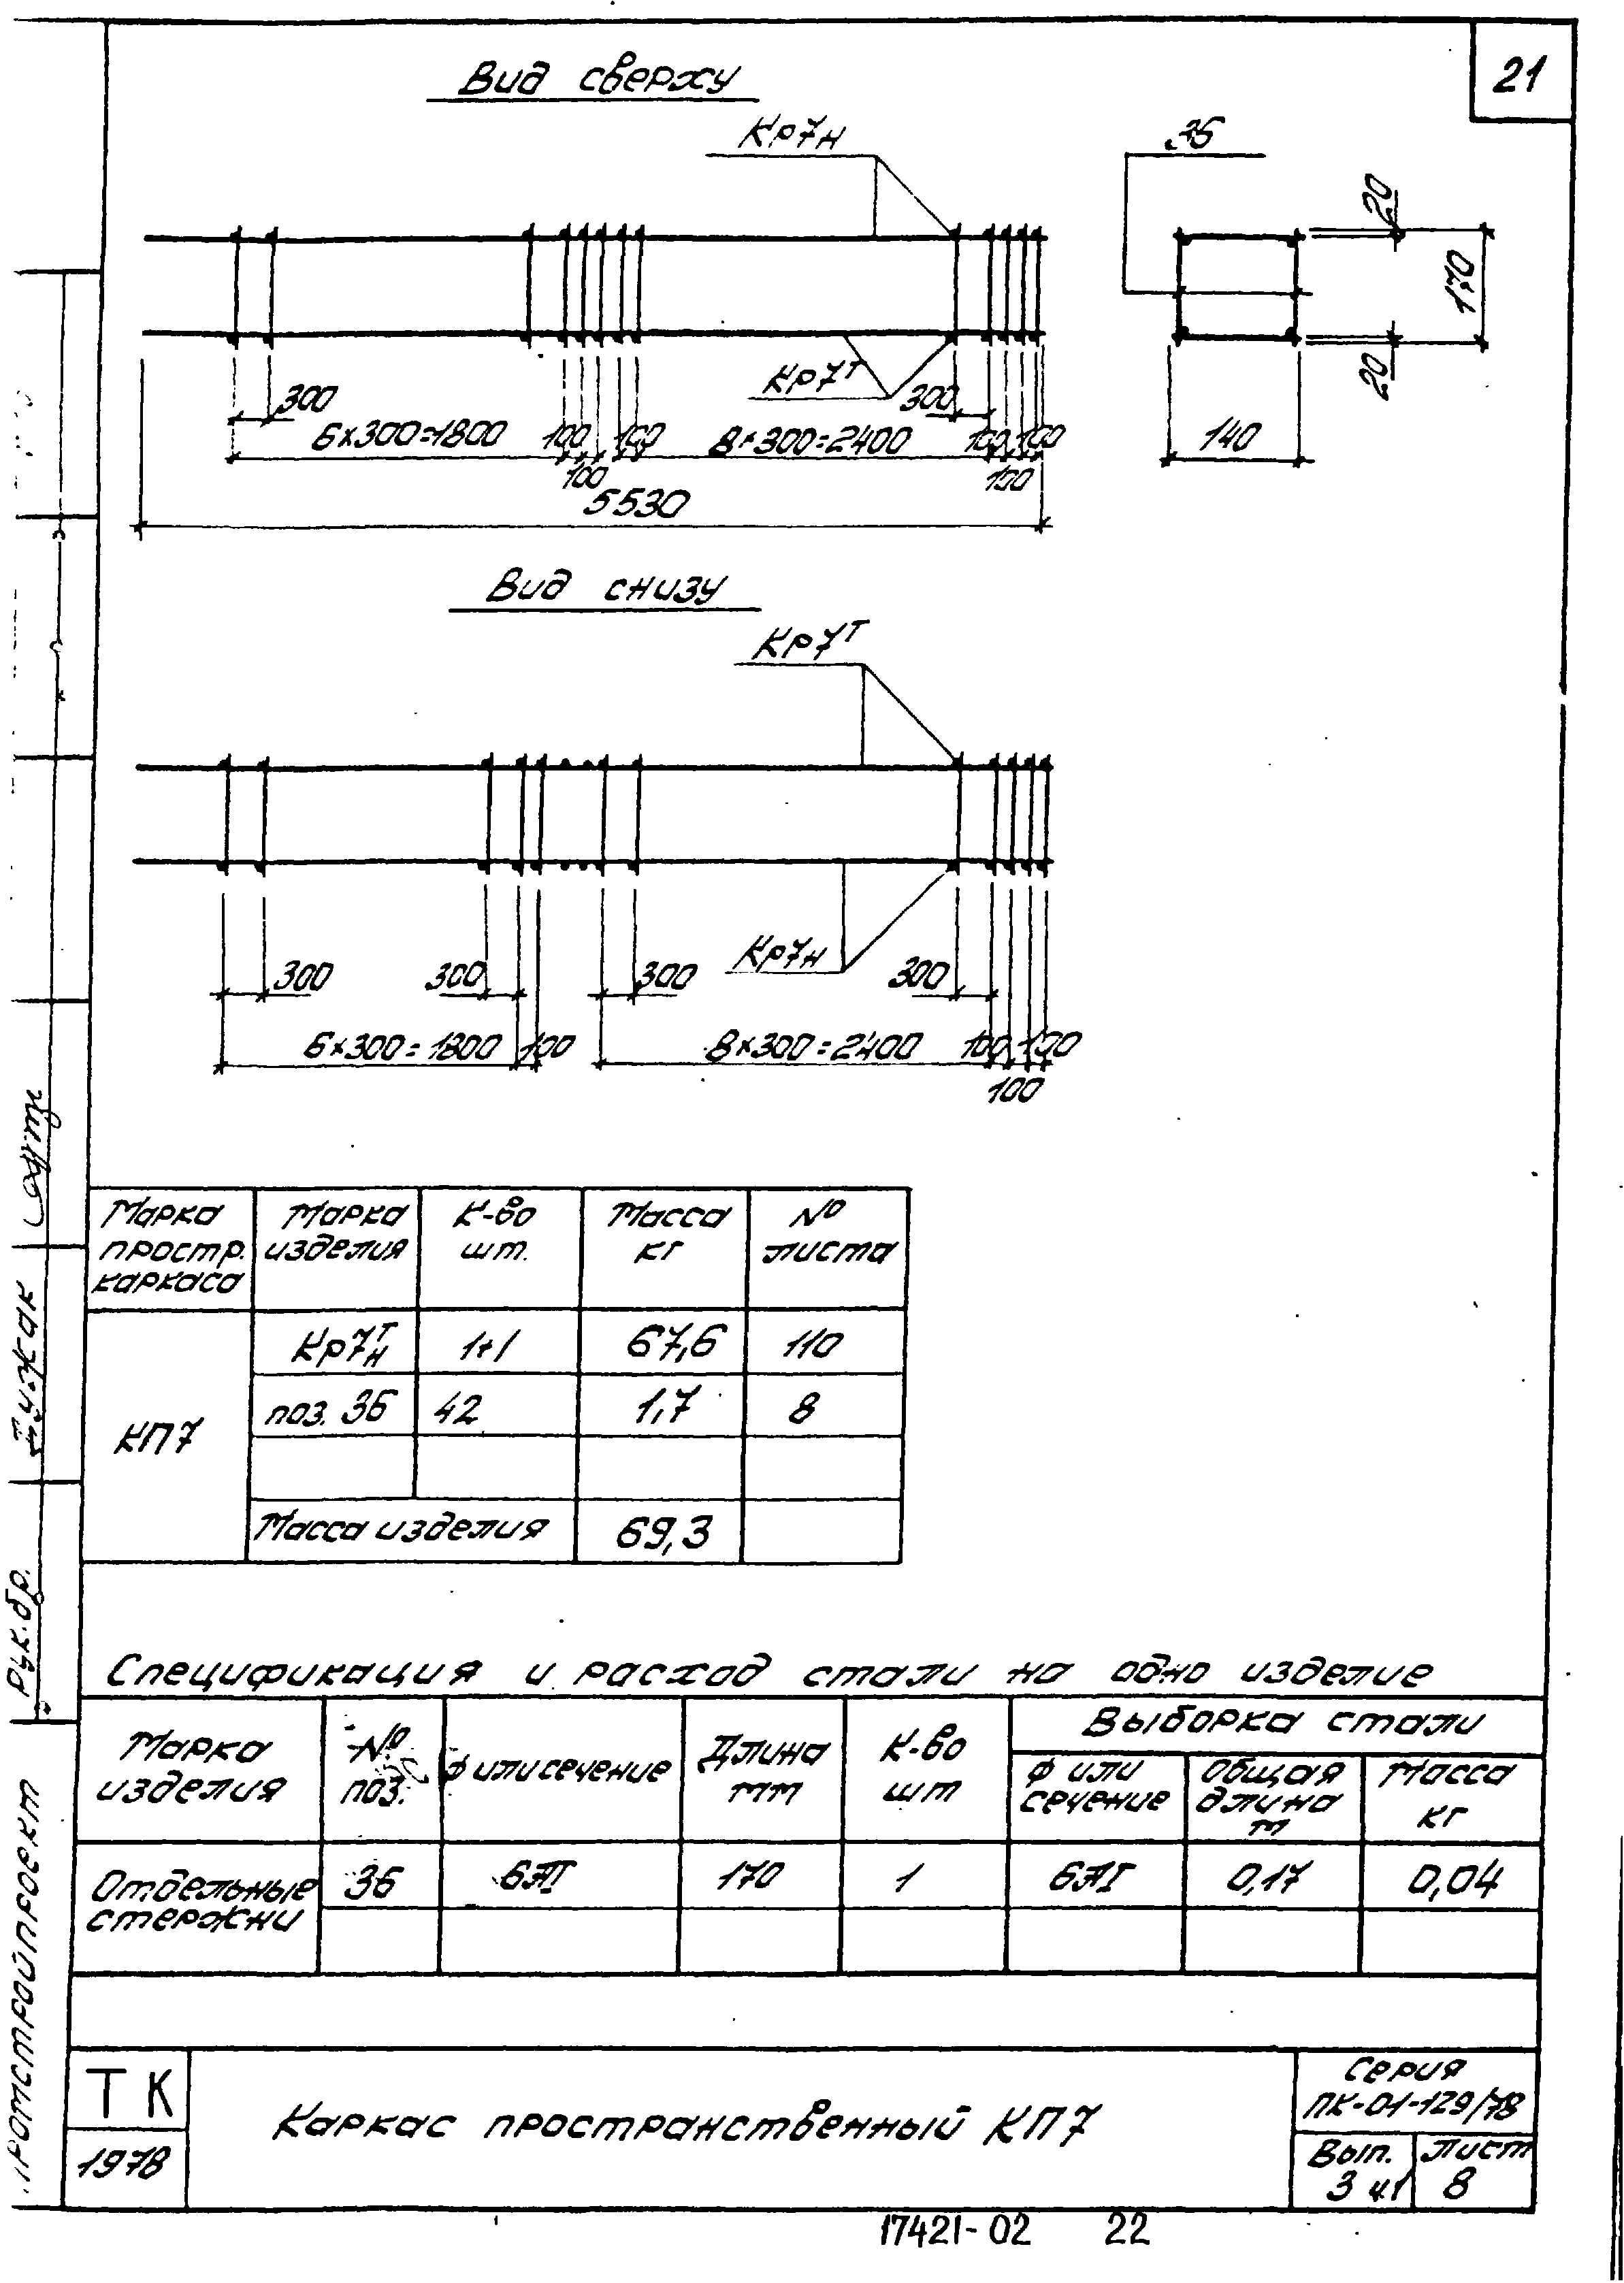 21
Вид сверху
Кр7н
36
20
170
20
140
Кр7т
300
300
6×300=1800
100
100
8×300=2400
100
100
100
100
5530
Вид снизу
Кр7т
Кр7н
300
300
300
300
6×300=1800
100
8×300=2400
100
100
100
Марка простр. каркаса
Марка изделия
К-во шт.
Масса кг
№ листа
КП7
Кр7тн
1+1
67,6
110
поз. 36
42
1,7
8
Масса изделия
69,3
Спецификация и расход стали на одно изделие
Марка изделия
№ поз.
Ф или сечение
Длина мм
К-во шт
Выборка стали
Ф или сечение
Общая длина м
Масса кг
Отдельные стержни
36
6АI
170
1
6АI
0,17
0,04
ТК
1978
Каркас пространственный КП7
Серия
ПК-01-129/78
Вып.
3 ч1
Лист
8
17421-02 22
Рук.бр.